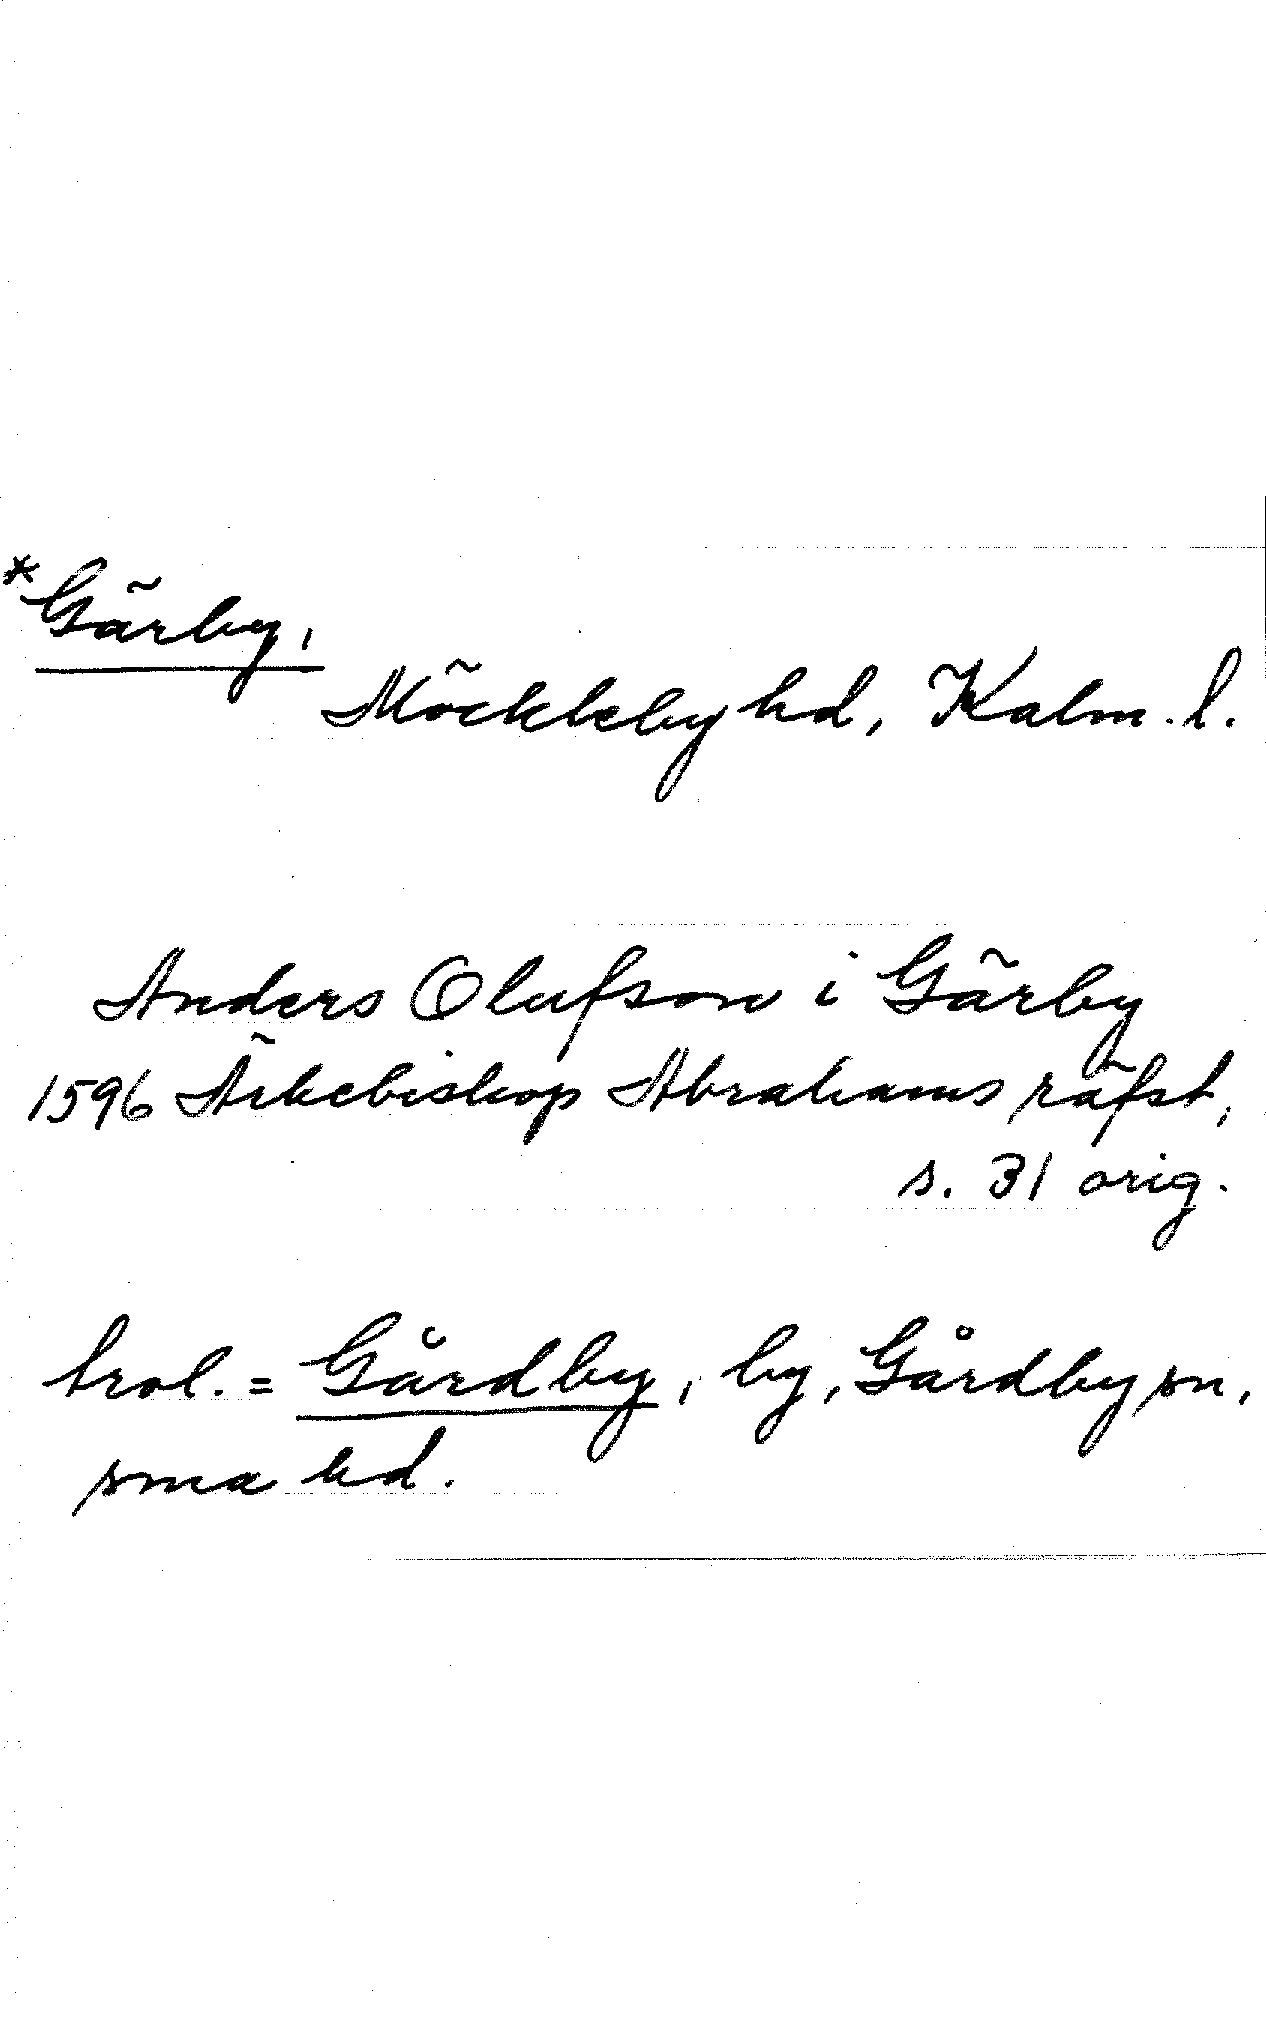 *Gärby,
Möckleby hd, Kalm. l.
Anders Olufson i Gärby
1596 Ärkebiskop Abrahams räfst,
s. 31 orig.
trol. = Gårdby, by, Gårdby sn,
sma hd.